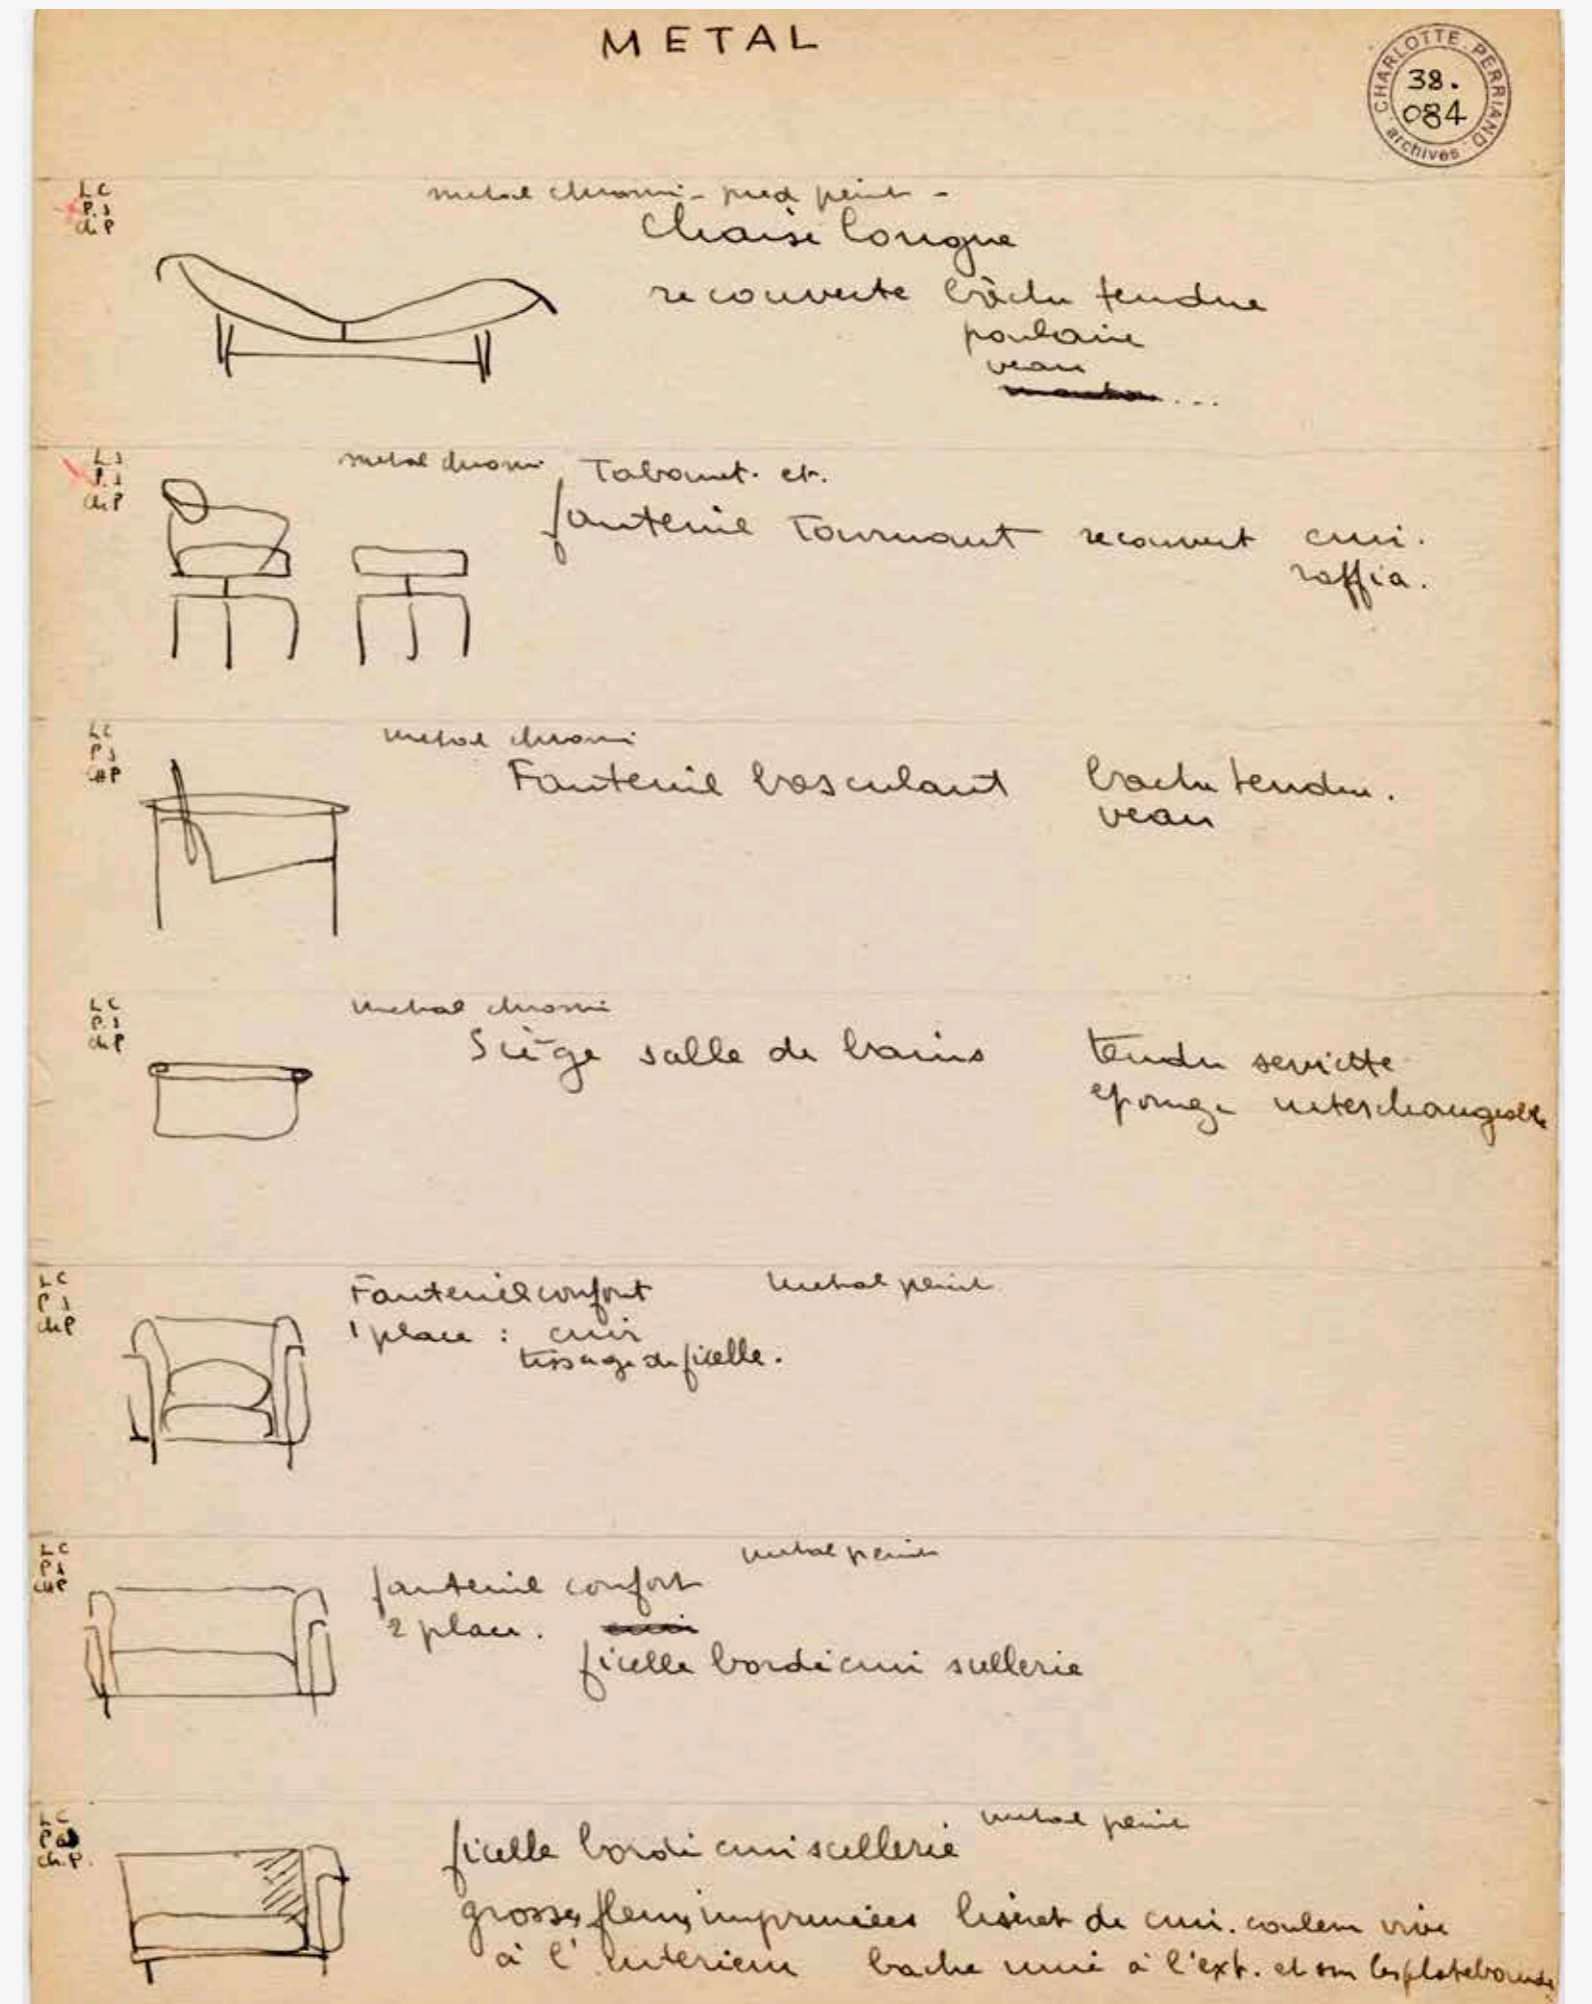 METAL
CHARLOTTE PERRIAND archives
38.
084
LC
P.J
ch P
metal chromé - pied peint -
Chaise longue
recouverte bâche tendue
poulain
veau
...
P.J
ch P
metal chromé
Tabouret. et.
fauteuil Tournant recouvert cuir.
raffia.
LC
PJ
CHP
metal chromé
Fauteuil basculant bache tendue.
veau
LC
P.J
ch P
metal chromé
Siège salle de bains tendu serviette
eponge interchangeable
LC
PJ
ch P
Fauteuil confort metal peint
1 place : cuir
tissage de ficelle.
LC
PJ
CHP
metal peint
fauteuil confort
2 place. cuir
ficelle bordé cuir sellerie
ch.P.
metal peint
ficelle bordé cuir scellerie
grosses fleurs imprimées liseret de cuir. couleur vive
à l'interieur bache unie à l'ext. et sur les platebandes